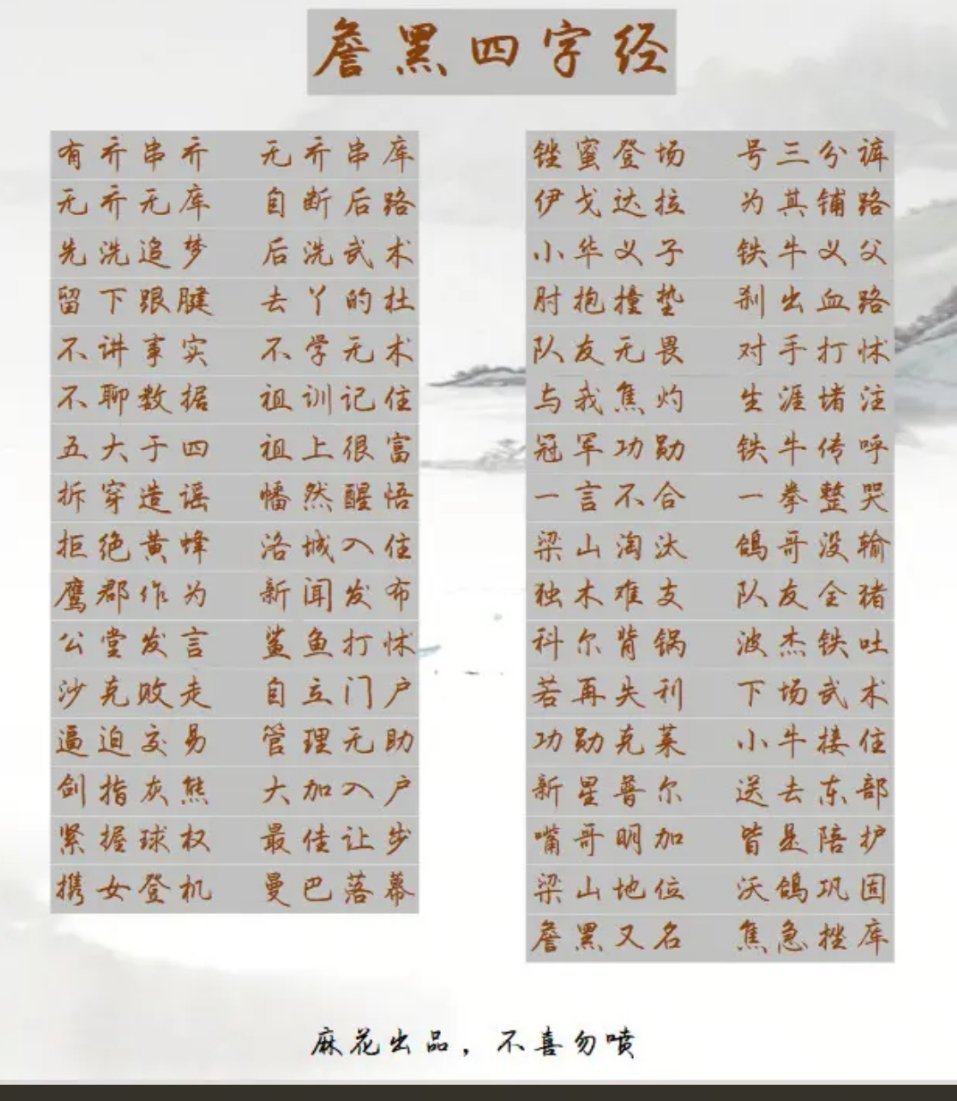 詹黑四字经
有乔串乔 无乔串库
无乔无库 自断后路
先洗追梦 后洗武术
留下跟腱 去丫的杜
不讲事实 不学无术
不聊数据 祖训记住
五大于四 祖上很富
拆穿造谣 幡然醒悟
拒绝黄蜂 洛城入住
鹰郡作为 新闻发布
公堂发言 鲨鱼打怵
沙克败走 自立门户
逼迫交易 管理无助
剑指灰熊 大加入户
紧握球权 最佳让步
携女登机 曼巴落幕
锉蜜登场 号三分裤
伊戈达拉 为其铺路
小华义子 铁牛义父
肘抱撞垫 刹出血路
队友无畏 对手打怵
与我焦灼 生涯堵注
冠军功勋 铁牛传呼
一言不合 一拳整哭
梁山淘汰 鸽哥没输
独木难支 队友全猪
科尔背锅 波杰铁吐
若再失利 下场武术
功勋克莱 小牛接住
新星普尔 送去东部
嘴哥明加 皆是陪护
梁山地位 沃鸽巩固
詹黑又名 焦急挫库
麻花出品，不喜勿喷